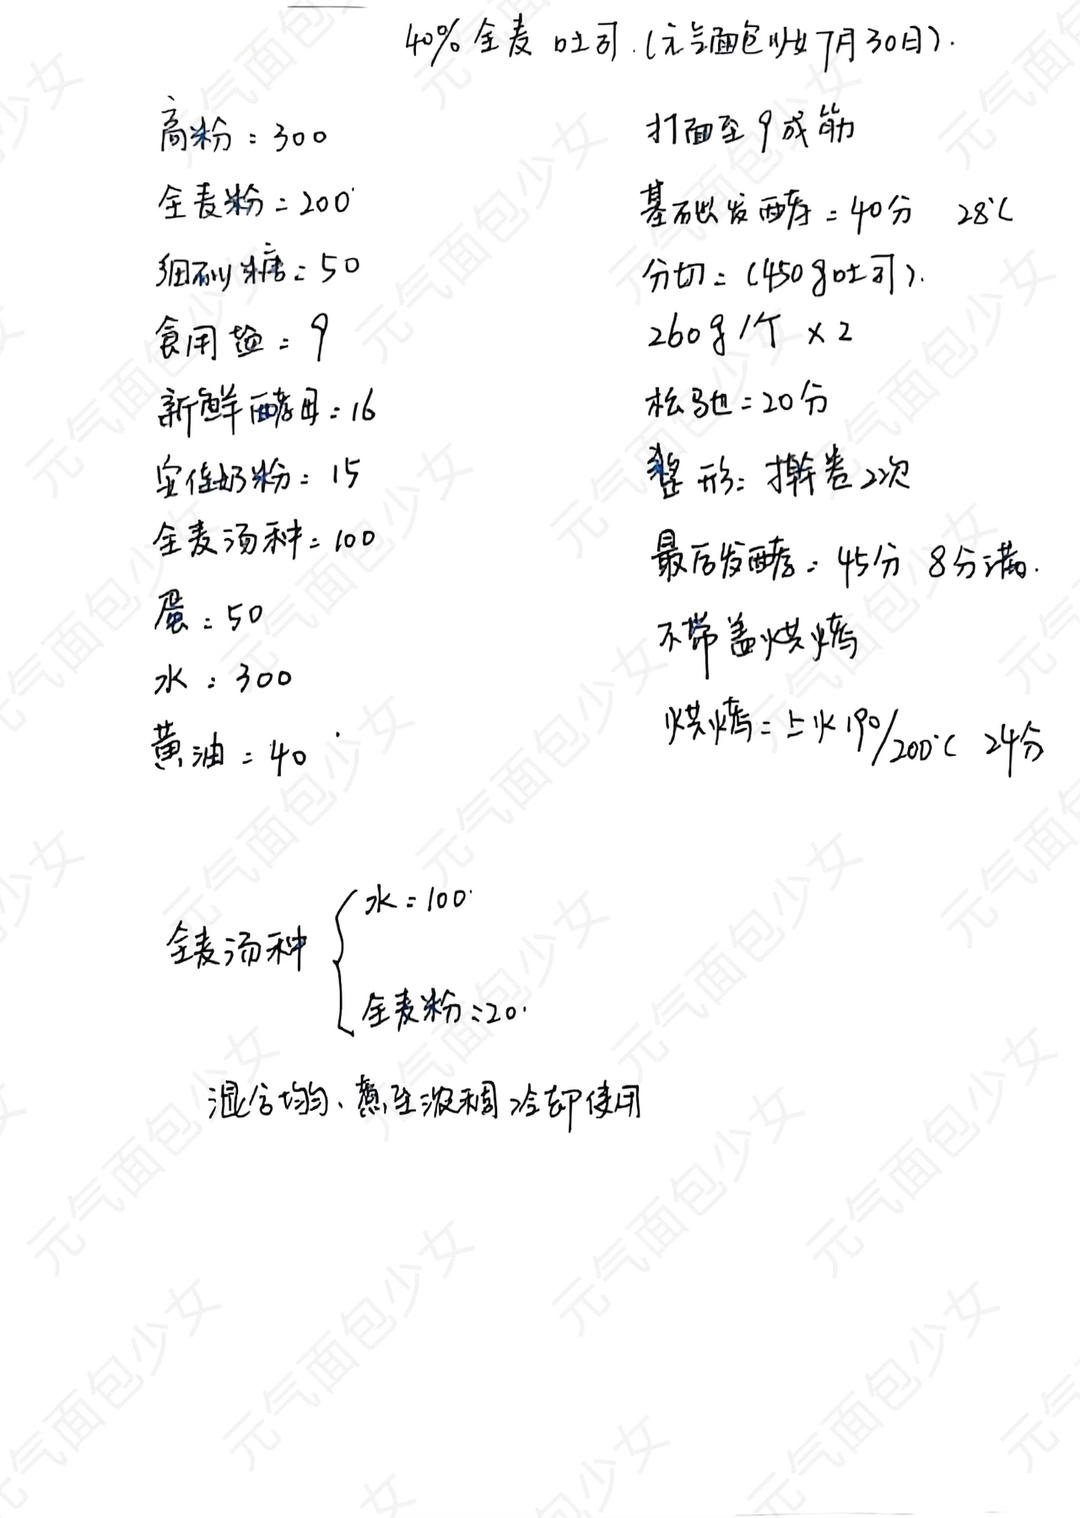 40% 全麦吐司.(元气面包少女7月30日).
高粉:300
全麦粉=200
细砂糖:50
食用盐:9
新鲜酵母:16
安佳奶粉:15
全麦汤种:100
蛋:50
水:300
黄油:40
打面至9成筋
基础发酵:40分 28℃
分切:(450g吐司).
260g/个 x2
松驰=20分
整形:擀卷2次
最后发酵:45分 8分满.
不带盖烘烤
烘烤=上火190/200℃ 24分
全麦汤种
水:100
全麦粉:20
混合均匀、煮至浓稠冷却使用
元气面包少女